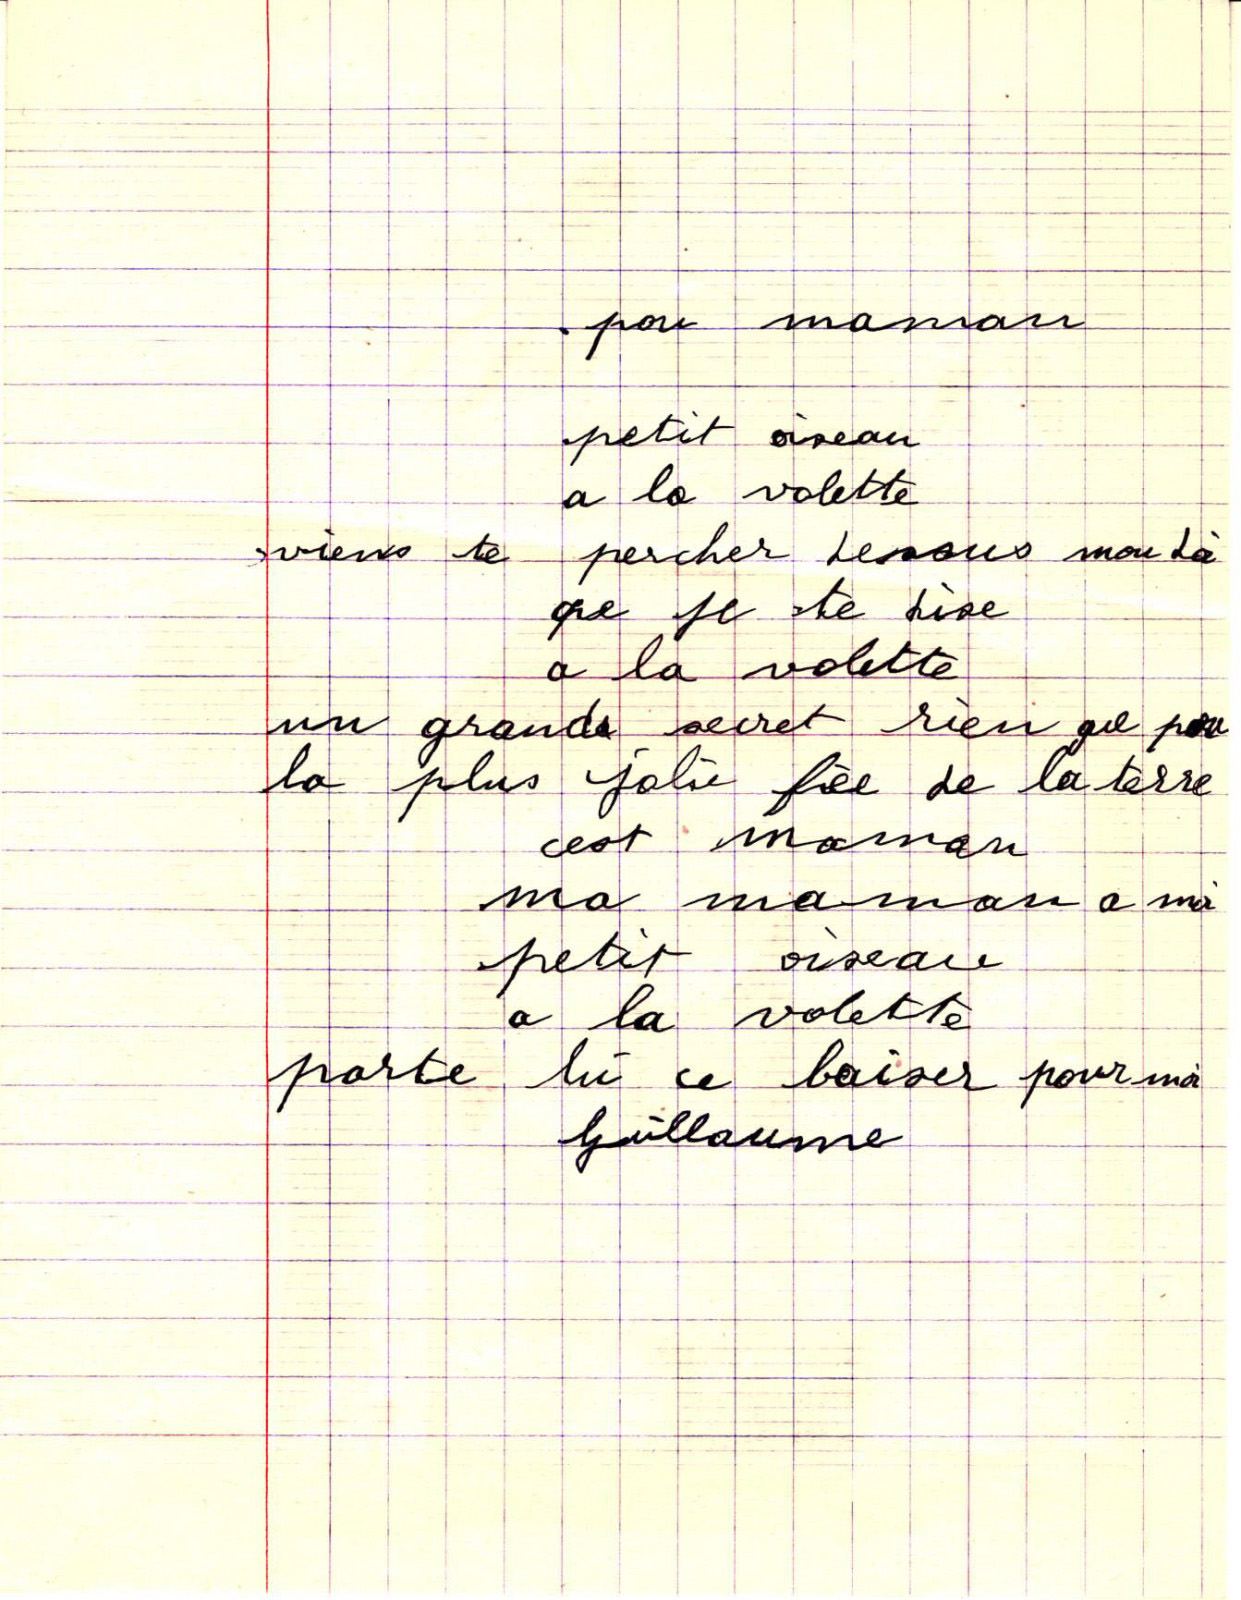 pou maman
petit oiseau
a la volette
viens te percher dessous mon dà
que je te dise
a la volette
un grande secret rien que pou
la plus jolie fée de la terre
cest maman
ma maman a moi
petit oiseau
a la volette
porte lui ce baiser pour moi
Guillaume